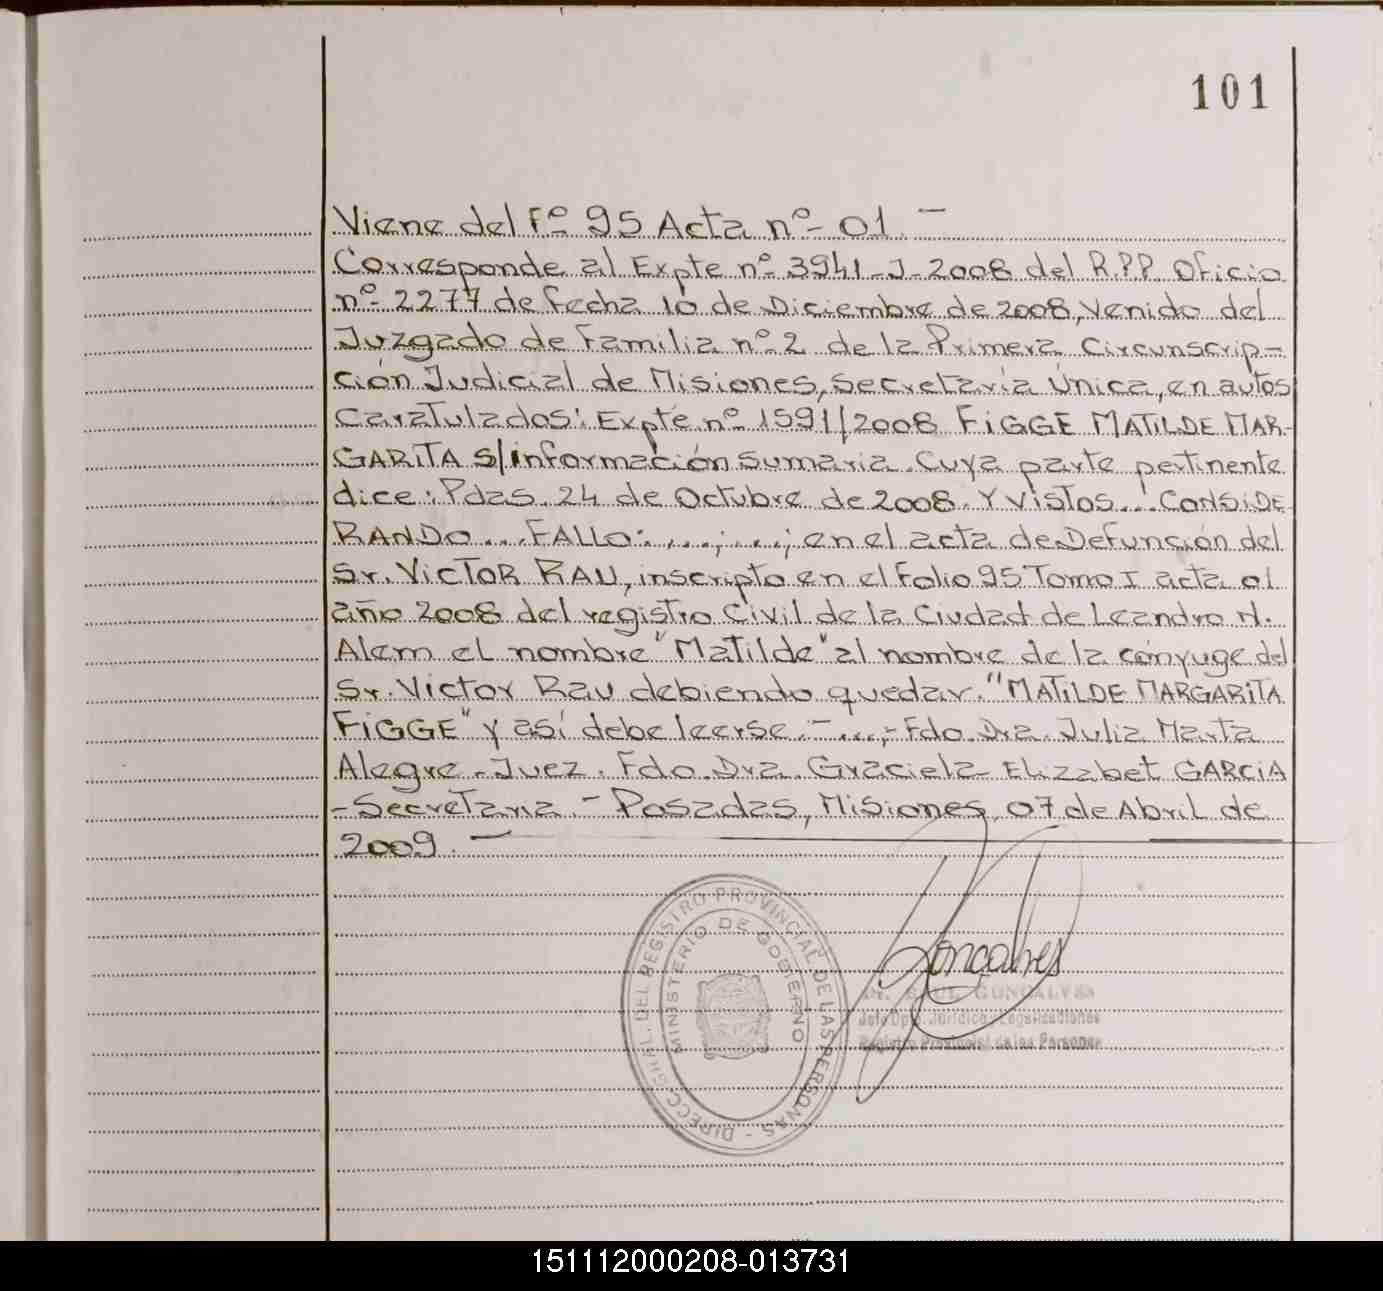 101
Viene del Fº 95 Acta nº- 01.-
Corresponde al Expte nº 3941-J-2008 del R.P.P. Oficio
nº- 2277 de fecha 10 de Diciembre de 2008, Venido del
Juzgado de Familia nº 2 de la Primera Circunscrip-
ción Judicial de Misiones, Secretaría Única, en autos
Caratulados: Expte nº 1591/2008 FIGGE MATILDE MAR-
GARITA S/Información Sumaria. Cuya parte pertinente
dice: Pdas, 24 de Octubre de 2008. Y Vistos... CONSIDE
RANDO... FALLO:....;....; en el acta de Defunción del
Sr. VICTOR RAU, inscripto en el Folio 95 Tomo I acta 01
año 2008 del registro Civil de la Ciudad de Leandro N.
Alem el nombre "Matilde" al nombre de la cónyuge del
Sr. Victor Rau debiendo quedar. "MATILDE MARGARITA
FIGGE" y así debe leerse.-...,- Fdo. Dra. Julia Marta
Alegre - Juez. Fdo. Dra. Graciela Elizabet GARCIA
- Secretaria.- Posadas, Misiones, 07 de Abril de
2009.
DIRECC. GRAL. DEL REGISTRO PROVINCIAL DE LAS PERSONAS -
MINISTERIO DE GOBIERNO
Goncalves
Dr. SAUL GONCALVES
Jefe Dpto. Jurídico y Legalizaciones
Registro Provincial de las Personas
151112000208-013731